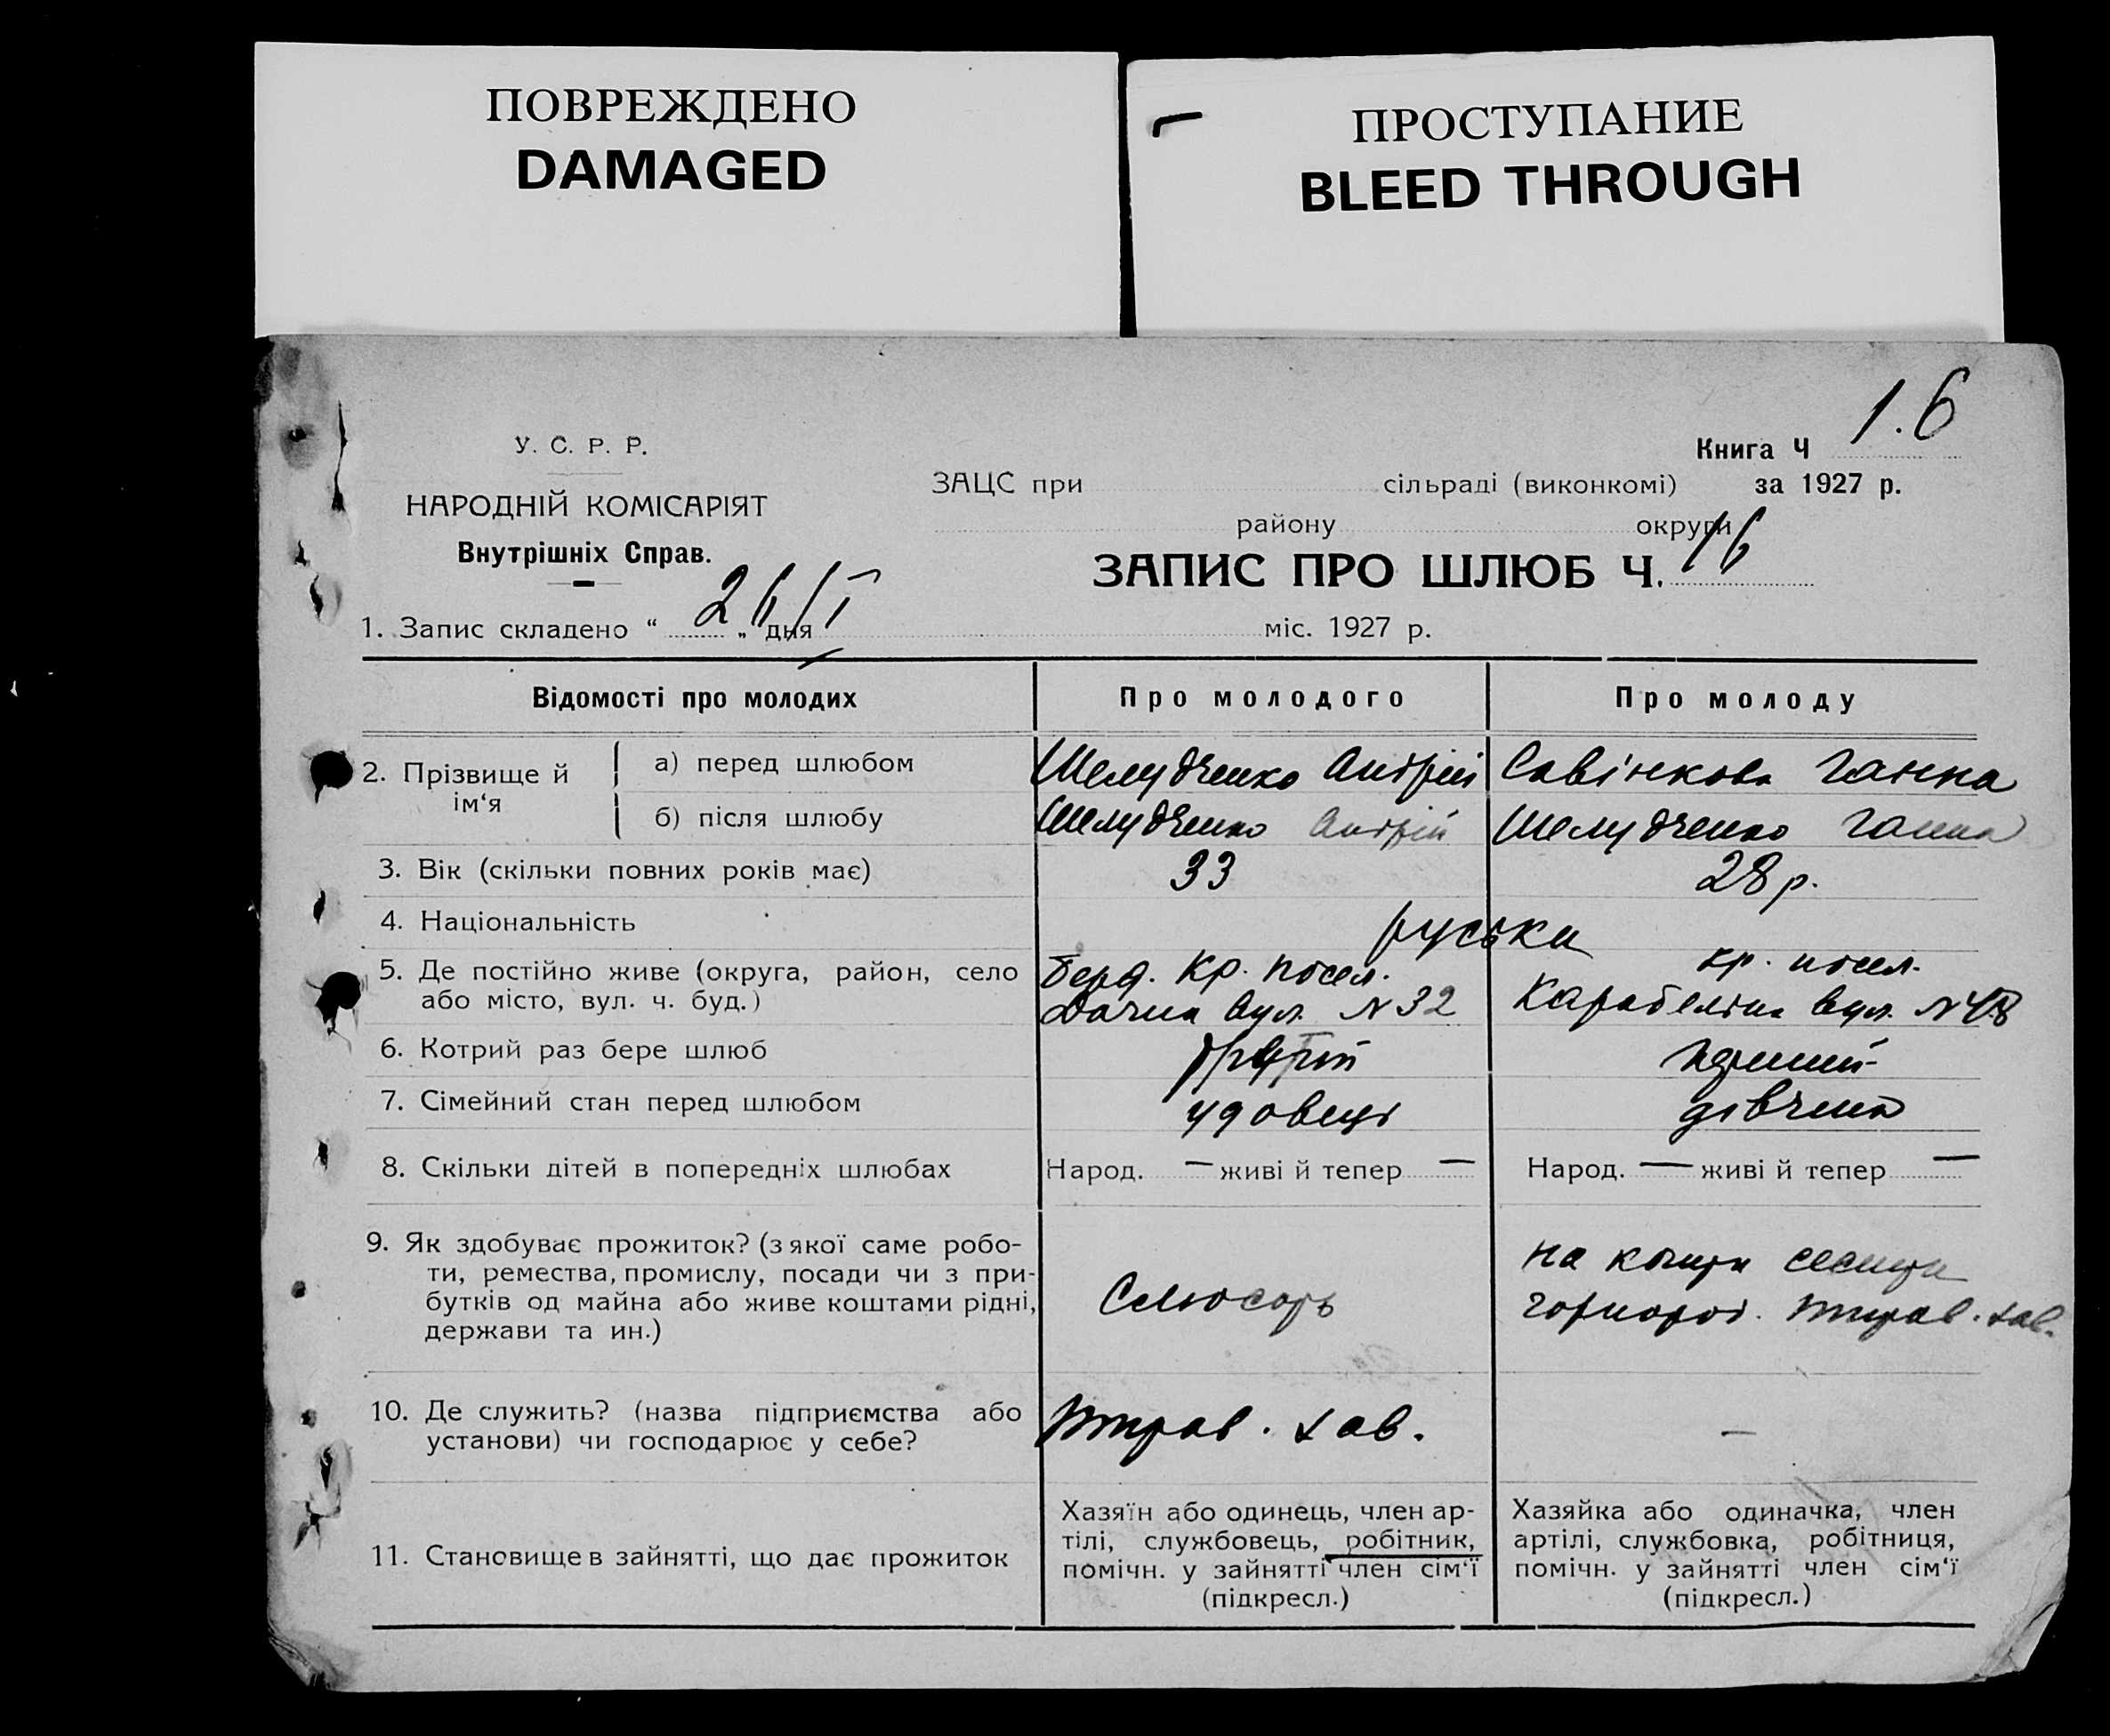 ПОВРЕЖДЕНО
DAMAGED
ПРОСТУПАНИЕ
BLEED THROUGH
У. С. Р. Р.
НАРОДНІЙ КОМІСАРІЯТ
Внутрішніх Справ.
Книга Ч 1.6
ЗАЦС при сільраді (виконкомі) за 1927 р.
району округи
ЗАПИС ПРО ШЛЮБ Ч. 16
1. Запис складено “ 26/I „ дня міс. 1927 р.
Відомості про молодих
Про молодого
Про молоду
2. Прізвище й ім‘я
а) перед шлюбом
Шелудченко Андрій
Савінкова Ганна
б) після шлюбу
Шелудченко Андрій
Шелудченко Ганна
3. Вік (скільки повних років має)
33
28 р.
4. Національність
руська
5. Де постійно живе (округа, район, село
або місто, вул. ч. буд.)
Берд. Кр. посел.
Дачна вул. N 32
кр. посел.
вул. N 48
6. Котрий раз бере шлюб
7. Сімейний стан перед шлюбом
удовець
дівчина
8. Скільки дітей в попередніх шлюбах
Народ. — живі й тепер —
Народ. — живі й тепер —
9. Як здобуває прожиток? (з якої саме робо-
ти, ремества, промислу, посади чи з при-
бутків од майна або живе коштами рідні,
держави та ин.)
Слюсарь
на кошти
10. Де служить? (назва підприємства або
установи) чи господарює у себе?
—
11. Становище в зайнятті, що дає прожиток
Хазяїн або одинець, член ар-
тілі, службовець, робітник,
помічн. у зайнятті член сім‘ї
(підкресл.)
Хазяйка або одиначка, член
артілі, службовка, робітниця,
помічн. у зайнятті член сім‘ї
(підкресл.)